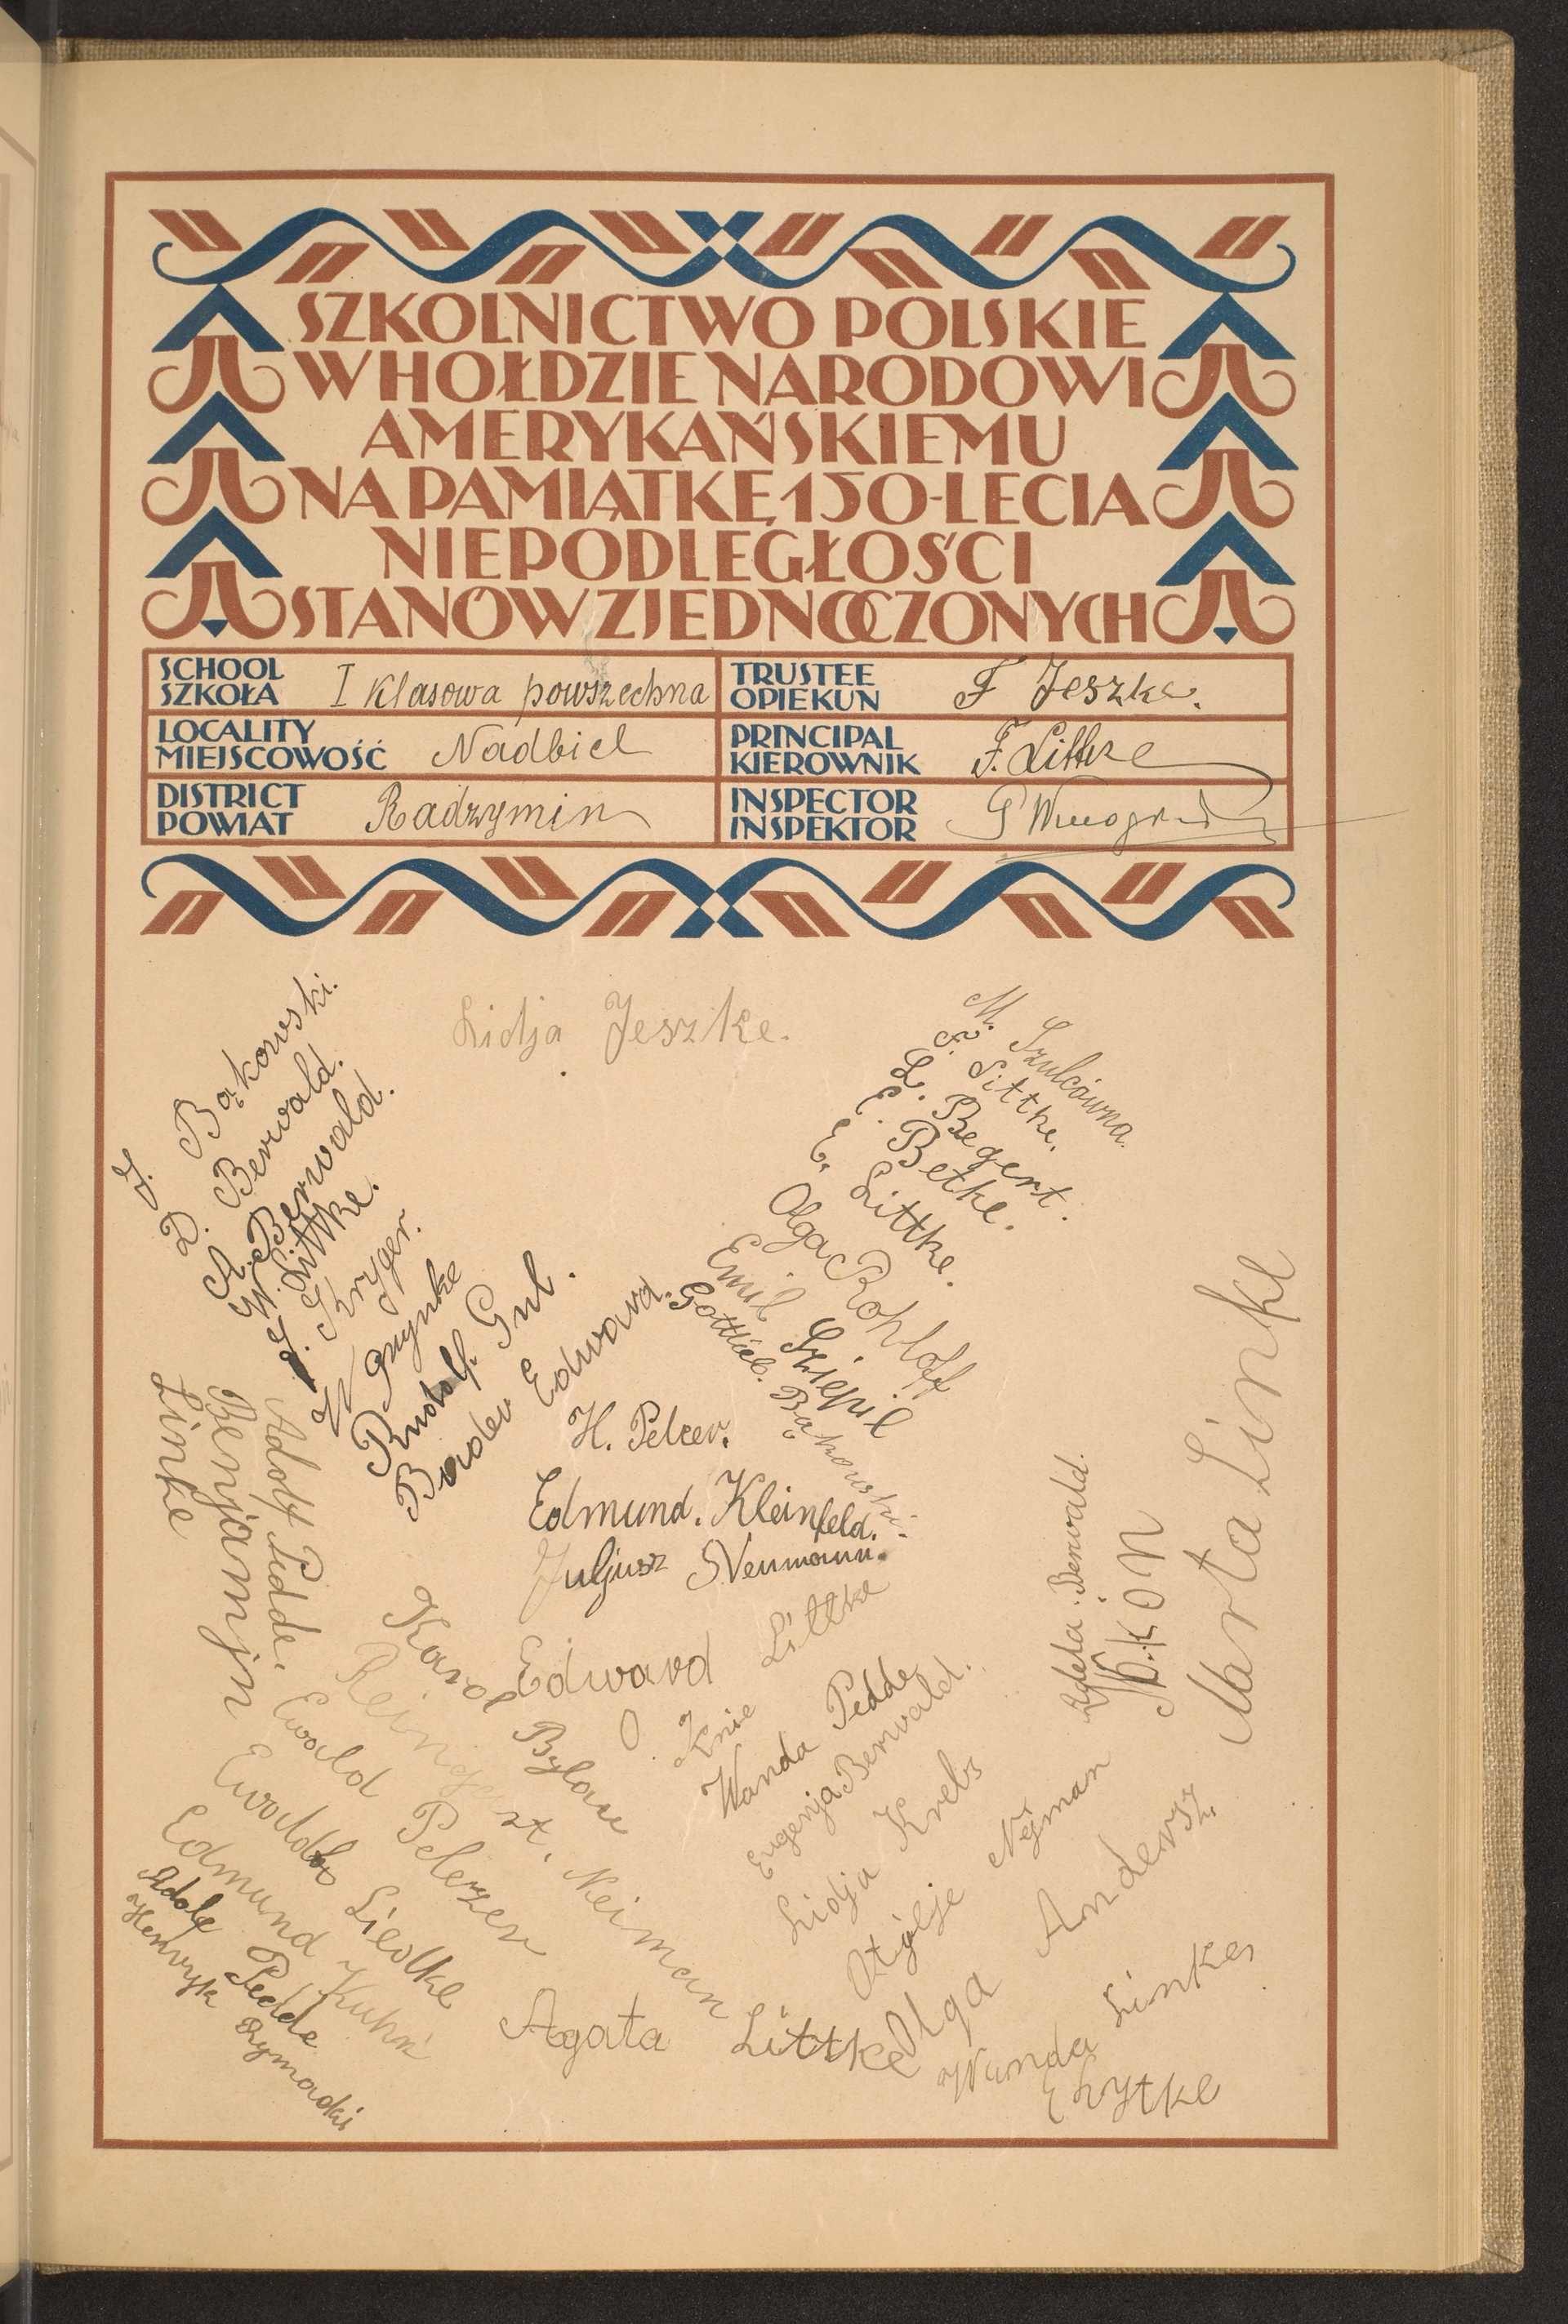 SZKOLNICTWO POLSKIE
W HOŁDZIE NARODOWI
AMERYKAŃSKIEMU
NA PAMIĄTKĘ 150-LECIA
NIEPODLEGŁOŚCI
STANÓW ZJEDNOCZONYCH
SCHOOL
SZKOŁA I Klasowa powszechna
TRUSTEE
OPIEKUN F Jeszke.
LOCALITY
MIEJSCOWOŚĆ Nadbiel
PRINCIPAL
KIEROWNIK F. Littke
DISTRICT
POWIAT Radzymin
INSPECTOR
INSPEKTOR
Lidja Jeszke.
J. Bąkowski.
D. Berwald.
R. Berwald.
W. Littke.
J. Kryger.
W Grynke
Rudolf. Gul.
Bader Edward.
M. Szulcówna.
F. Littke.
L. Begert.
E. Betke.
E. Littke.
Olga Rohloff
Emil
Gottlieb. Bąkowski.
H. Pelcer.
Edmund. Kleinfeld.
Juljusz Neumann.
Edward Littke
O. Knie
Wanda Pedde
Eugenja Berwald.
Lidja Krebs
Otylje Nejman
Olga Andersz.
Wanda Linke
E Lytke
Agata Littke
Adela. Berwald.
Marta Linke
Adolf Pedde.
Benjamin
Linke
Karol Bylow
Reingast. Neiman
Ewald Pelczer
Ewald Liedke
Edmund Kuhn
Adolf Pedde
Henryk